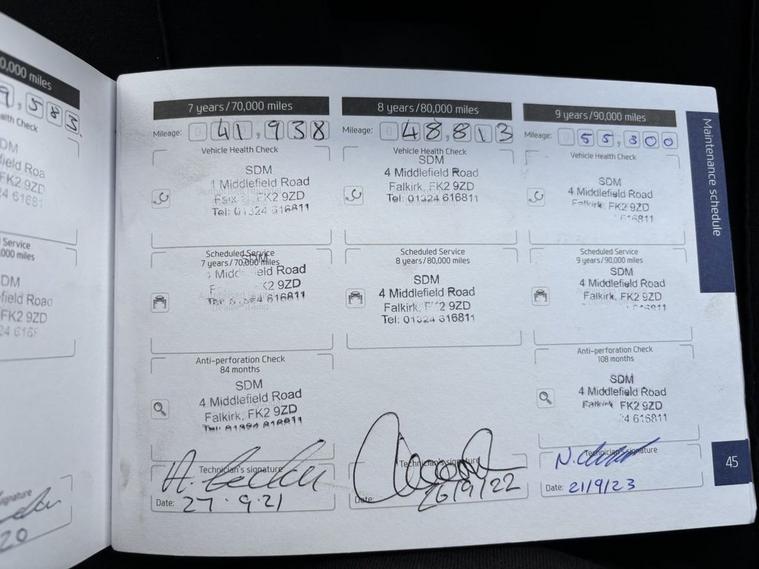 0,000 miles
9,583
alth Check
DM
field Roa
FK2 9ZD
24 6168
Service
000 miles
DM
field Road
FK2 9ZD
24 616
Signature
20
7 years/70,000 miles
Mileage: 0 41,938
Vehicle Health Check
SDM
1 Middlefield Road
FK2 9ZD
Tel: 01324 616811
Scheduled Service
7 years/70,000 miles
SDM
Middlefield Road
FK2 9ZD
616811
Anti-perforation Check
84 months
SDM
4 Middlefield Road
Falkirk, FK2 9ZD
Tel: 01324 616811
Technician's signature
Date: 27.9.21
8 years/80,000 miles
Mileage: 0 48,813
Vehicle Health Check
SDM
4 Middlefield Road
Falkirk, FK2 9ZD
Tel: 01324 616811
Scheduled Service
8 years/80,000 miles
SDM
4 Middlefield Road
Falkirk, FK2 9ZD
Tel: 01324 616811
Technician's signature
Date: 26/9/22
9 years/90,000 miles
Mileage: 0 55,300
Vehicle Health Check
SDM
4 Middlefield Road
Falkirk, FK2 9ZD
616811
Scheduled Service
9 years/90,000 miles
SDM
4 Middlefield Road
Falkirk, FK2 9ZD
Anti-perforation Check
108 months
SDM
4 Middlefield Road
Falkirk, FK2 9ZD
4 616811
Technician's signature
Date: 21/9/23
Maintenance schedule
45